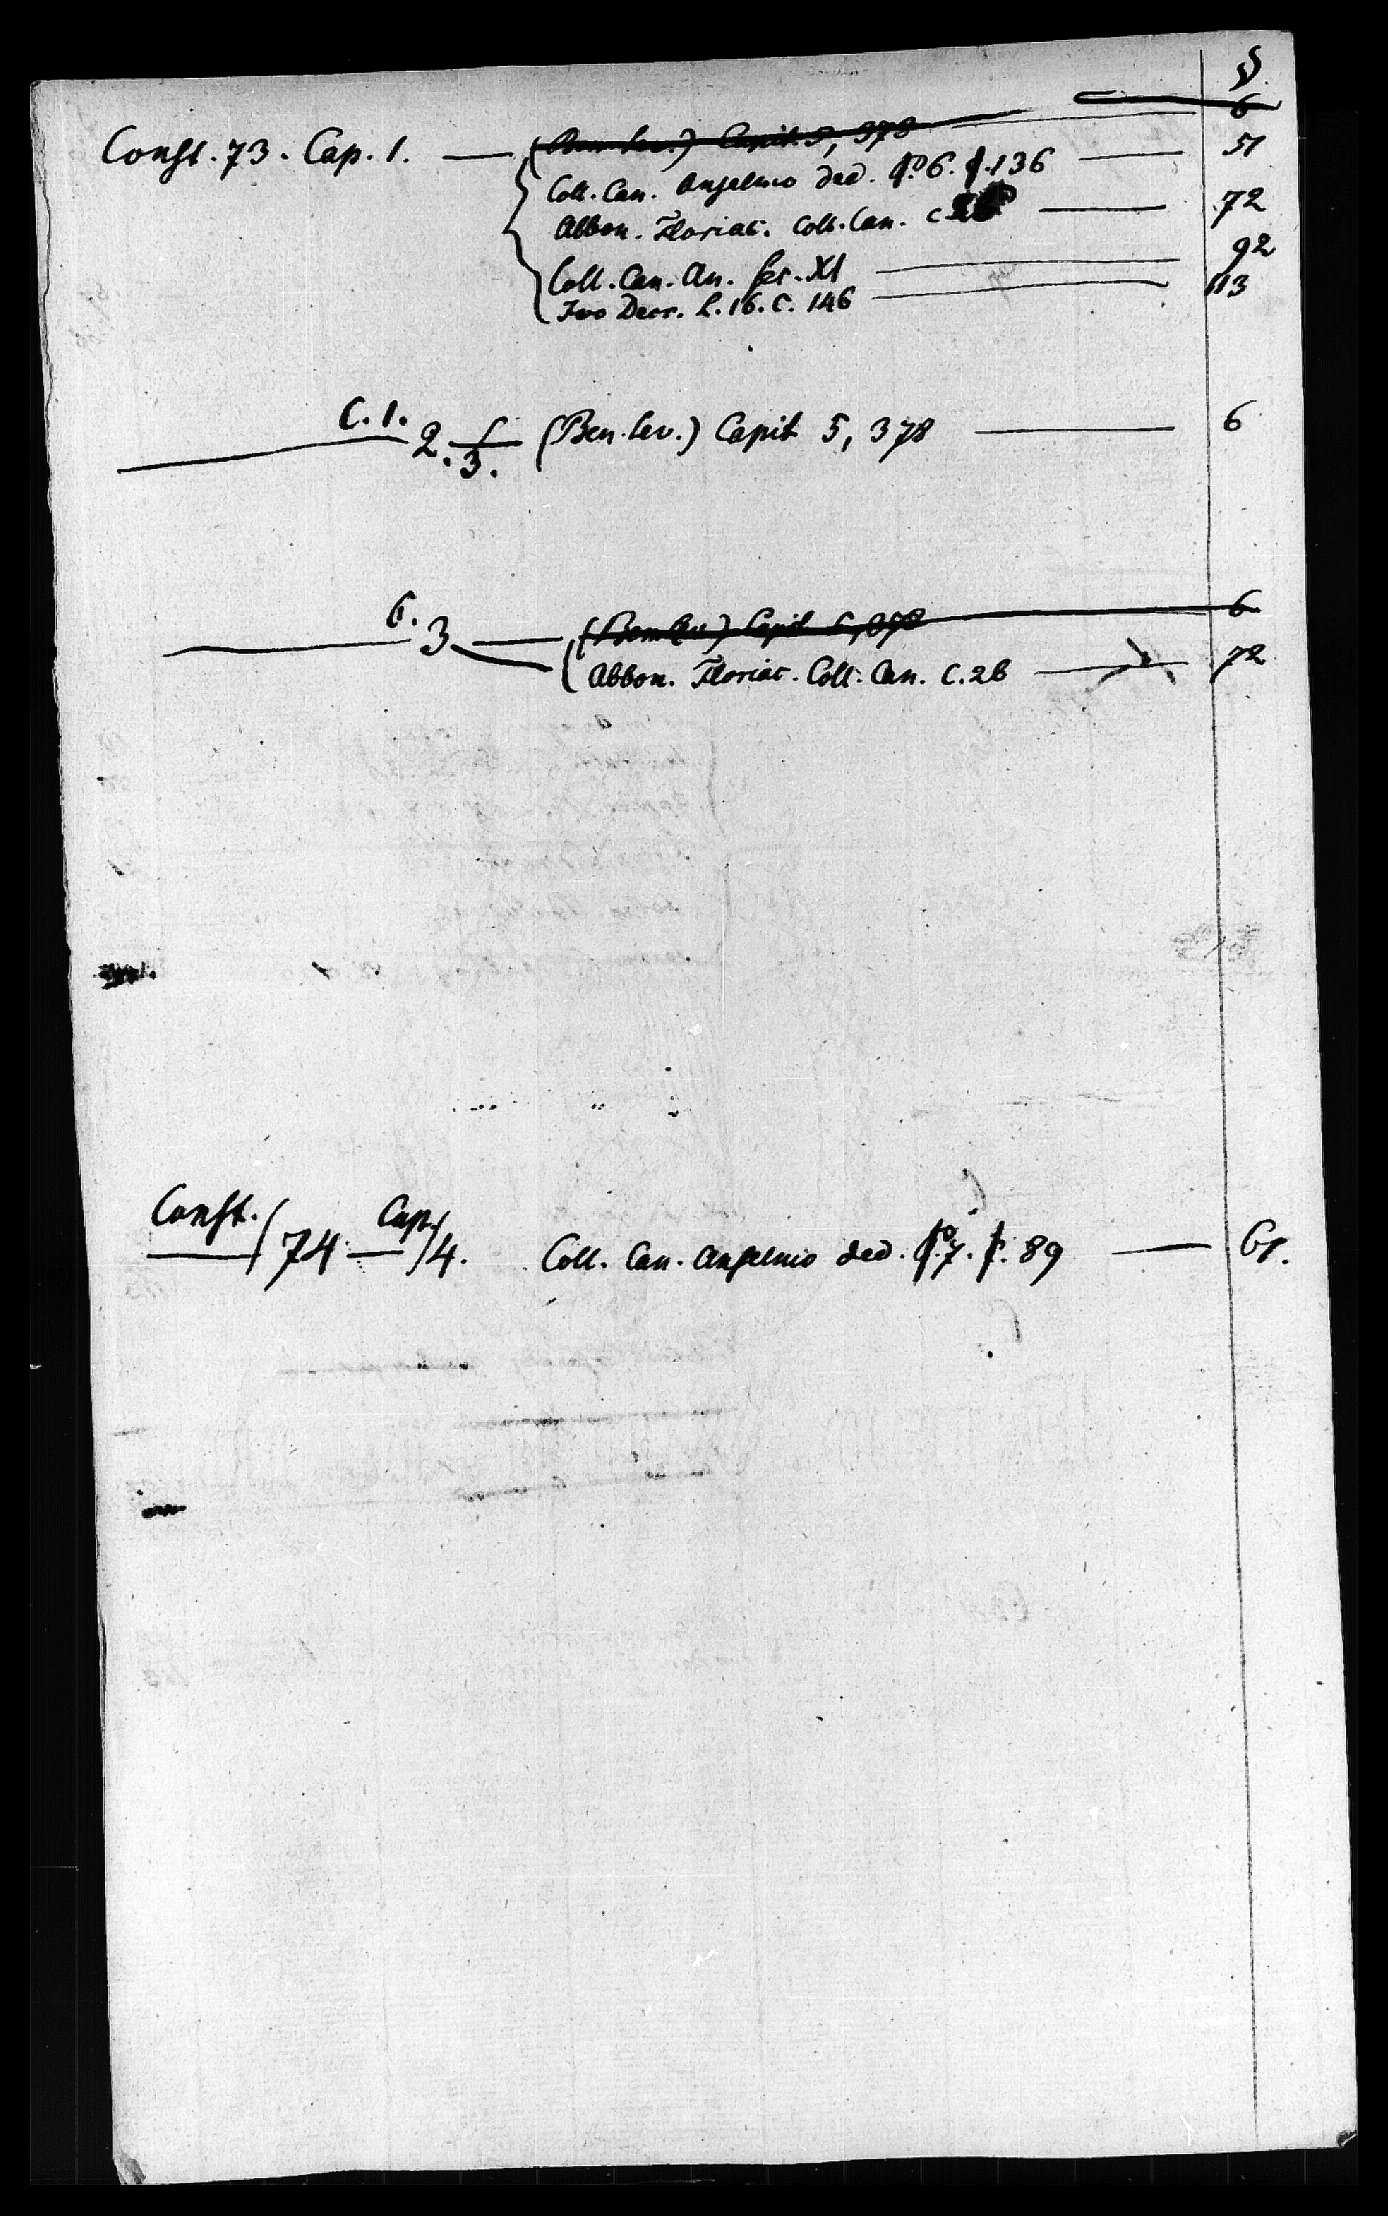 S.
Const. 73. Cap. 1. — (Ben. Lev.) Capit. 5, 378 — 6
Coll. Can. Anselmo ded. P. 6. p. 136 — 51
Abbon. Floriac. Coll. Can. C. — 72
Coll. Can. An. sec. XI — 92
Ivo Decr. L. 16. C. 146 — 113
— C. 1. 2. 3. (Ben. Lev.) Capit 5, 378 — 6
— 6. 3 — (Ben. Lev.) Capit 5, 378 — 6
Abbon. Floriac. Coll. Can. C. 26 — 72
Const. 74 — Cap. 4. Coll. Can. Anselmo ded. P. 7. p. 89 — 61.